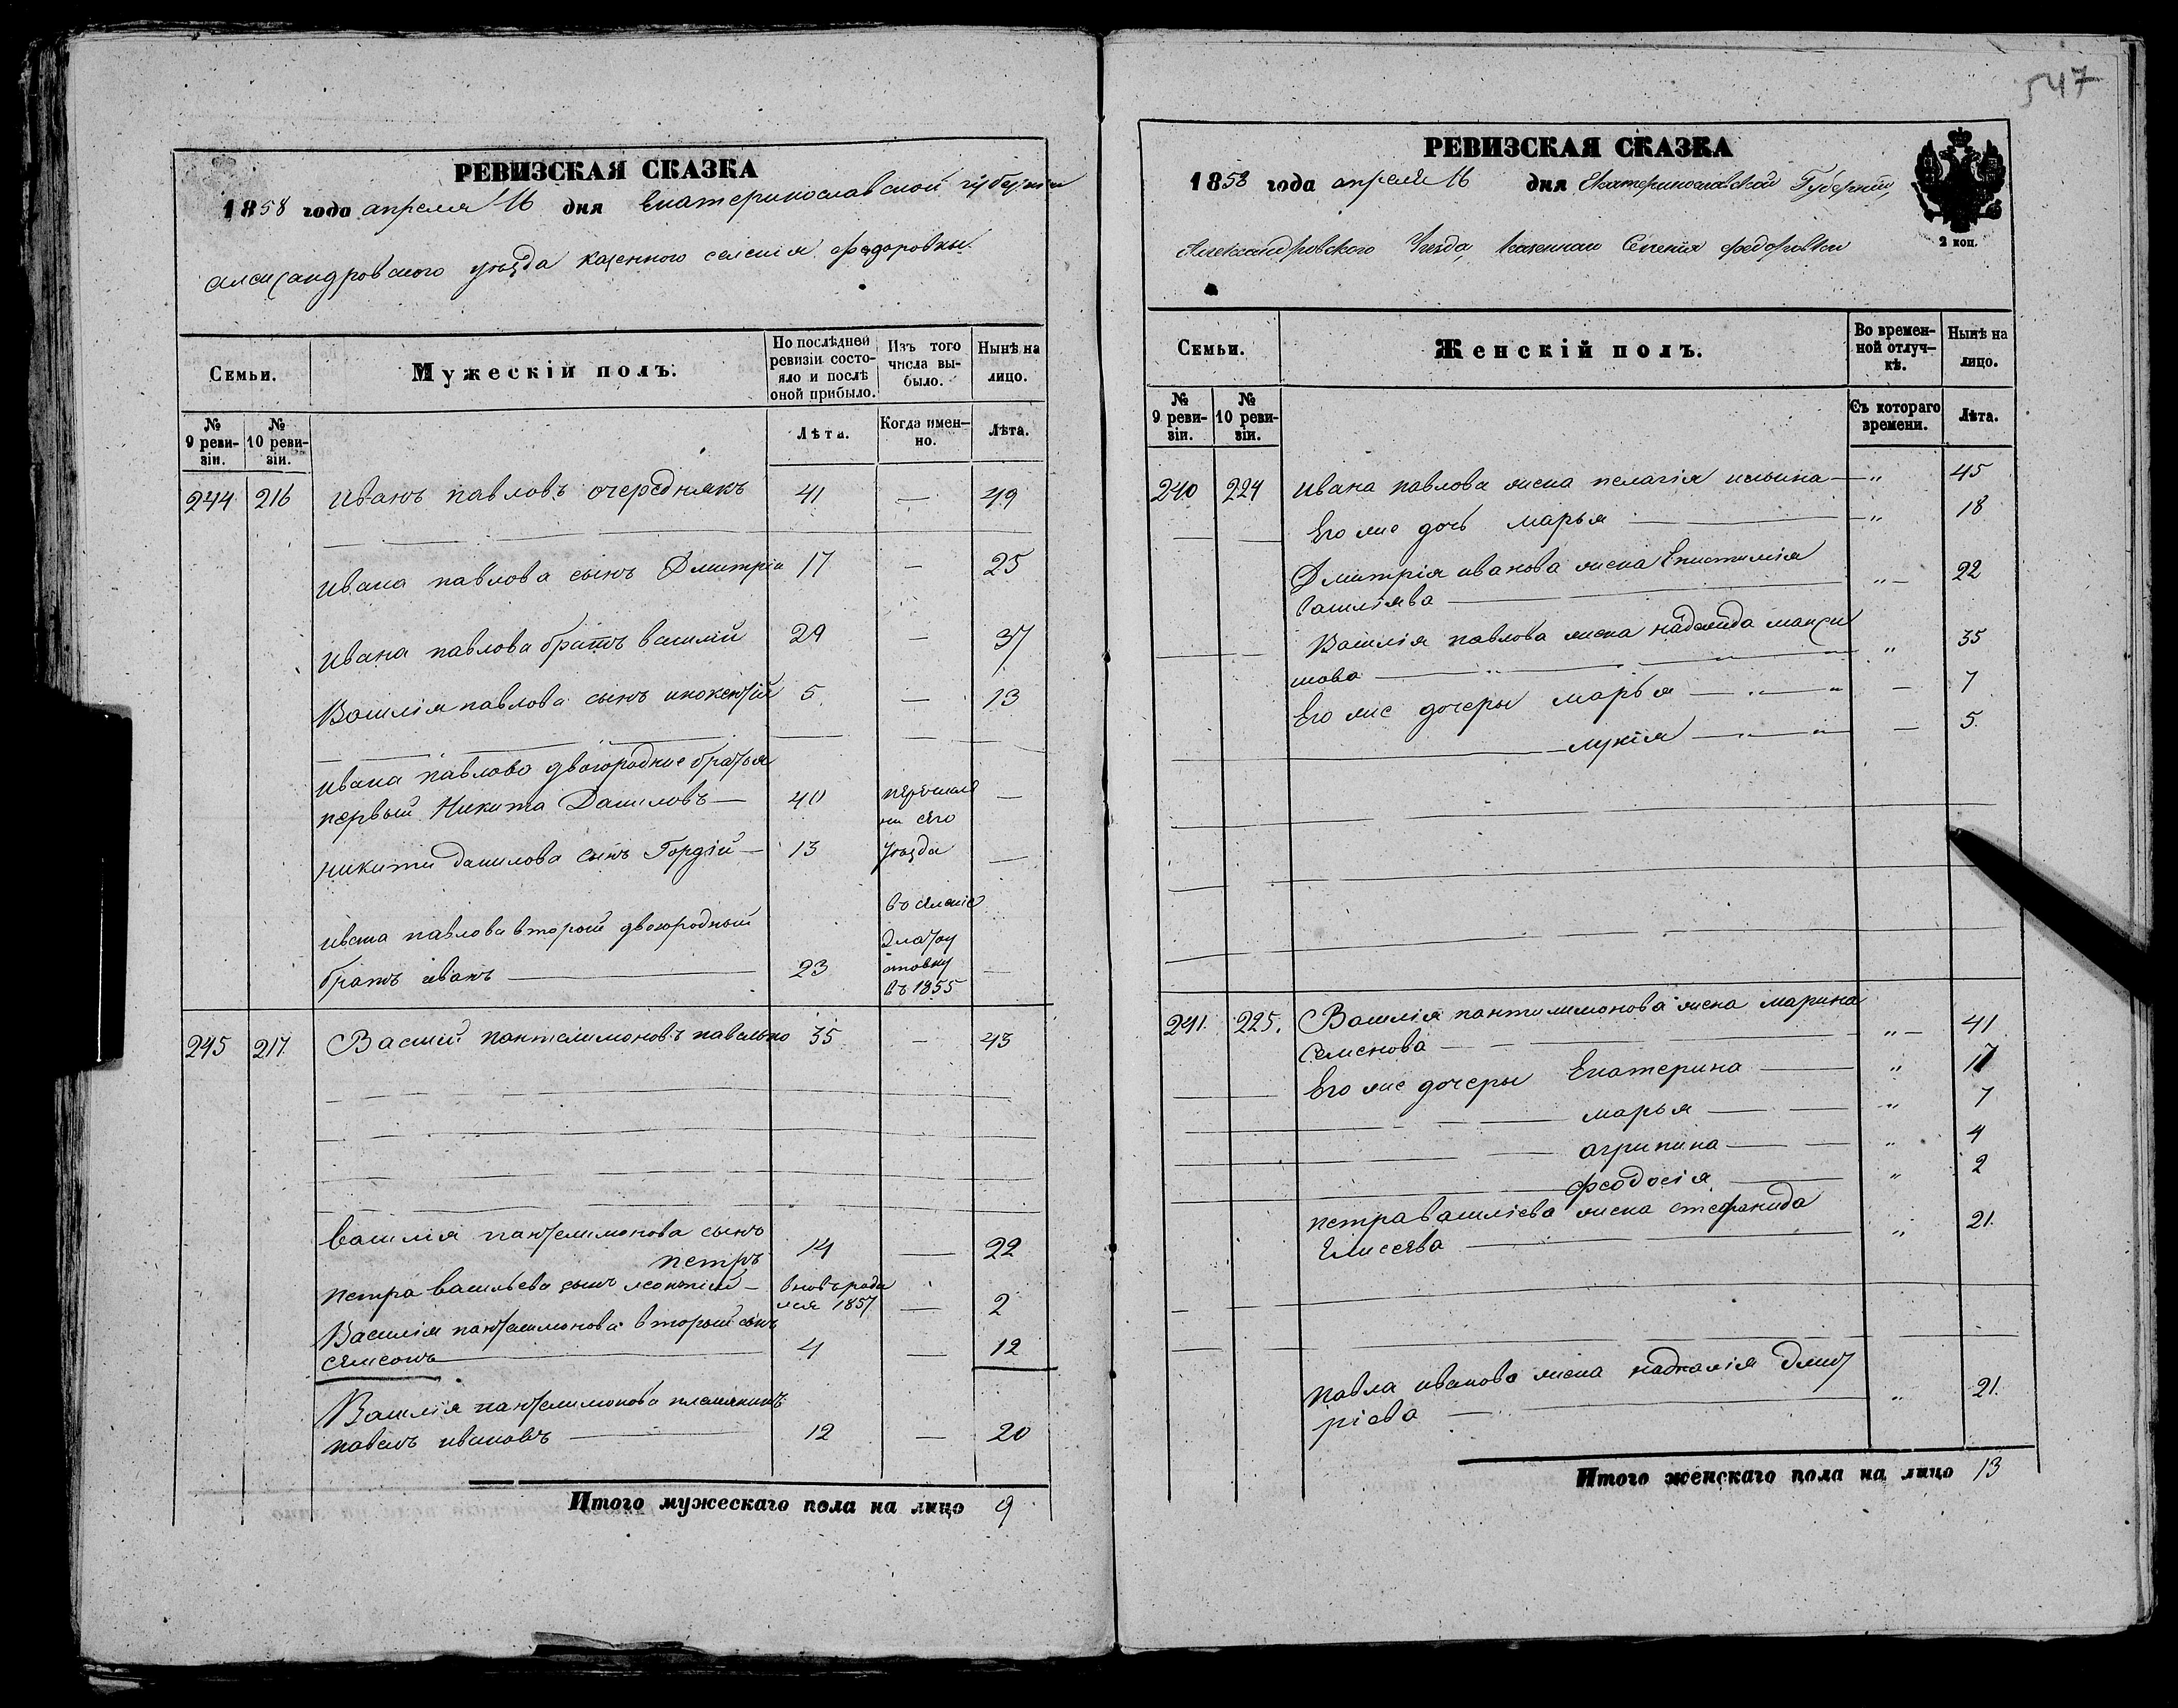 РЕВИЗСКАЯ СКАЗКА
1858 года апреля 16 дня Екатеринославской губернии
александровского уезда казенного селения федоровки
Семьи.
Мужескій полъ.
По послѣдней ревизіи состояло и послѣ оной прибыло.
Изъ того числа выбыло.
Нынѣ на лицо.
№ 9 ревизіи.
№ 10 ревизіи.
Лѣта.
Когда именно.
Лѣта.
244 216 иванъ павловъ очереднякъ 41 — 49
ивана павлова сынъ Дмитрій 17 — 25
ивана павлова братъ василий 29 — 37
Василія павлова сынъ инокентій 5 — 13
ивана павлова двоюродные братья
первый Никита Даниловъ — 40 —
никиты данилова сынъ Гордій — 13 —
ивана павлова второй двоюродный
братъ иванъ 23 —
сего
уезда
въ 1855
245 217 Василий пантелимоновъ павленко 35 — 43
василія пантелимонова сынъ
петръ 14 — 22
петра васильева сынъ леонтий — вновь роди
лся 1857 — 2
Василия пантелимонова второй сынъ
семеонъ 4 — 12
Василия пантелимонова племяникъ
павелъ ивановъ 12 — 20
Итого мужескаго пола на лицо 9
547
РЕВИЗСКАЯ СКАЗКА
1858 года апреля 16 дня Екатеринославской Губернии,
Александровского Уезда, Казеннаго Селения федоровки
2 коп.
Семьи.
Женскій полъ.
Во временной отлучкѣ.
Нынѣ на лицо.
№ 9 ревизіи.
№ 10 ревизіи.
Съ котораго времени.
Лѣта.
240 224 ивана павлова жена пелагія ильина — „ 45
Его же дочь марья — „ 18
Дмитрія иванова жена Епистимія
василіява „ — 22
Василія павлова жена надежда макси
мова „ 35
Его же дочеры марья — 7
лукія — 5
241. 225. Василія пантилимонова жена марина
Семенова „ — 41
Его же дочеры Екатерина — „ 17
марья — „ 7
агрипина — „ 4
феодосія „ 2
петра василіева жена стефанида
Елисеева „ 21.
павла иванова жена надталія дмит
ріева „ 21.
Итого женскаго пола на лицо 13